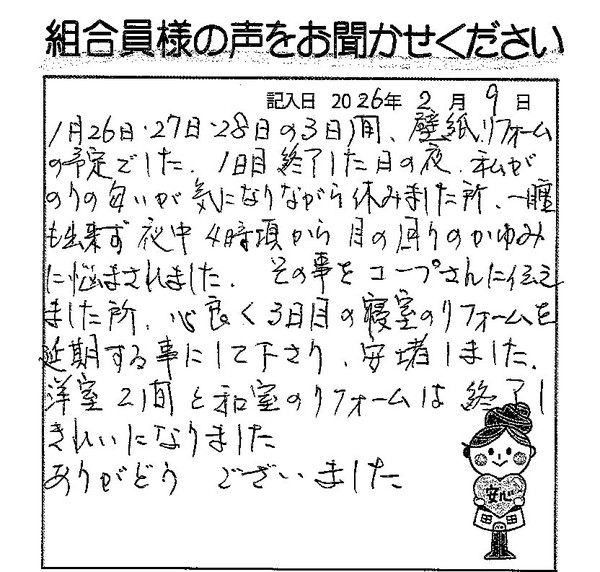 組合員様の声をお聞かせください
記入日 2026年 2月 9日
1月26日・27日・28日の3日間、壁紙リフォーム
の予定でした。1日目終了した日の夜、私が
のりの匂いが気になりながら休みました所、一睡
も出来ず夜中4時頃から目の回りのかゆみ
に悩まされました。その事をコープさんに伝え
ました所、心良く3日目の寝室のリフォームを
延期する事にして下さり、安堵しました。
洋室2間と和室のリフォームは終了し
きれいになりました
ありがとうございました
安心